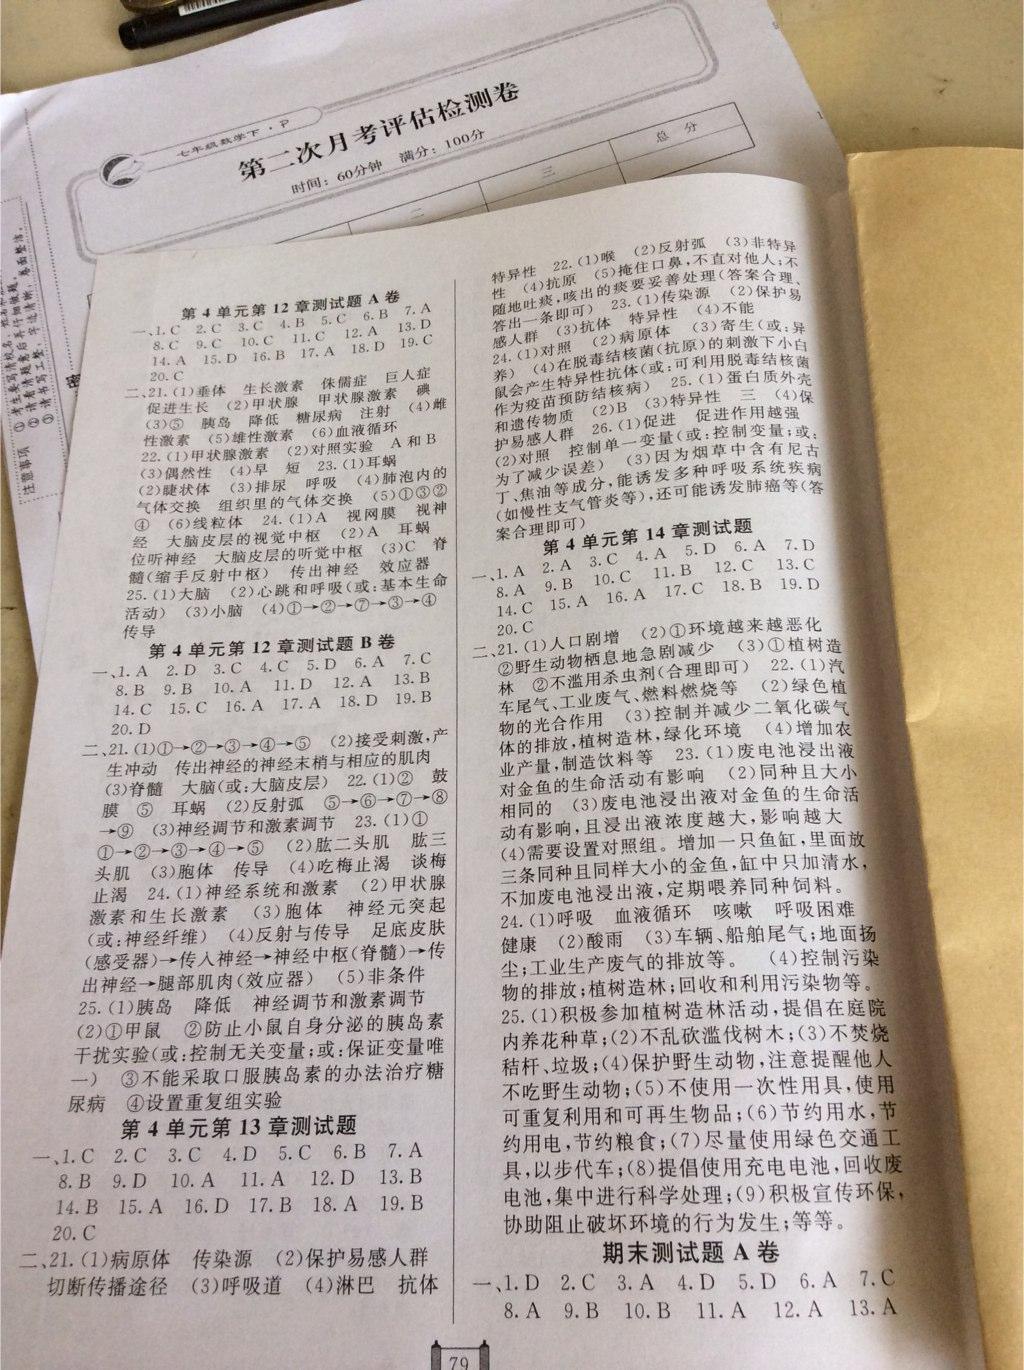 七年级数学下·P
第二次月考评估检测卷
时间：60分钟 满分：100分
二 三 总 分
注意事项
②请看清题意后再仔细做题。
③请书写工整，字迹清晰，卷面整洁。
第4单元第12章测试题A卷
一、1.C 2.C 3.C 4.B 5.C 6.B 7.A
8.C 9.C 10.C 11.C 12.A 13.D
14.A 15.D 16.B 17.A 18.D 19.C
20.C
二、21.(1)垂体 生长激素 侏儒症 巨人症
促进生长 (2)甲状腺 甲状腺激素 碘
(3)⑤ 胰岛 降低 糖尿病 注射 (4)雌
性激素 (5)雄性激素 (6)血液循环
22.(1)甲状腺激素 (2)对照实验 A和B
(3)偶然性 (4)早 短 23.(1)耳蜗
(2)睫状体 (3)排尿 呼吸 (4)肺泡内的
气体交换 组织里的气体交换 (5)①③②
④ (6)线粒体 24.(1)A 视网膜 视神
经 大脑皮层的视觉中枢 (2)A 耳蜗
位听神经 大脑皮层的听觉中枢 (3)C 脊
髓(缩手反射中枢) 传出神经 效应器
25.(1)大脑 (2)心跳和呼吸(或:基本生命
活动) (3)小脑 (4)①→②→⑦→③→④
传导
第4单元第12章测试题B卷
一、1.A 2.D 3.C 4.C 5.D 6.A 7.C
8.B 9.B 10.A 11.D 12.A 13.B
14.C 15.C 16.A 17.A 18.D 19.B
20.D
二、21.(1)①→②→③→④→⑤ (2)接受刺激,产
生冲动 传出神经的神经末梢与相应的肌肉
(3)脊髓 大脑(或:大脑皮层) 22.(1)② 鼓
膜 ⑤ 耳蜗 (2)反射弧 ⑤→⑥→⑦→⑧
→⑨ (3)神经调节和激素调节 23.(1)①
①→②→③→④→⑤ (2)肱二头肌 肱三
头肌 (3)胞体 传导 (4)吃梅止渴 谈梅
止渴 24.(1)神经系统和激素 (2)甲状腺
激素和生长激素 (3)胞体 神经元突起
(或:神经纤维) (4)反射与传导 足底皮肤
(感受器)→传入神经→神经中枢(脊髓)→传
出神经→腿部肌肉(效应器) (5)非条件
25.(1)胰岛 降低 神经调节和激素调节
(2)①甲鼠 ②防止小鼠自身分泌的胰岛素
干扰实验(或:控制无关变量;或:保证变量唯
一) ③不能采取口服胰岛素的办法治疗糖
尿病 ④设置重复组实验
第4单元第13章测试题
一、1.C 2.C 3.C 4.D 5.C 6.B 7.A
8.B 9.D 10.A 11.A 12.D 13.B
14.B 15.A 16.D 17.B 18.A 19.B
20.C
二、21.(1)病原体 传染源 (2)保护易感人群
切断传播途径 (3)呼吸道 (4)淋巴 抗体
特异性 22.(1)喉 (2)反射弧 (3)非特异
性 (4)抗原 (5)掩住口鼻,不直对他人;不
随地吐痰,咳出的痰要妥善处理(答案合理、
答出一条即可) 23.(1)传染源 (2)保护易
感人群 (3)抗体 特异性 (4)不能
24.(1)对照 (2)病原体 (3)寄生(或:异
养) (4)在脱毒结核菌(抗原)的刺激下小白
鼠会产生特异性抗体(或:可利用脱毒结核菌
作为疫苗预防结核病) 25.(1)蛋白质外壳
和遗传物质 (2)B (3)特异性 三 (4)保
护易感人群 26.(1)促进 促进作用越强
(2)对照 控制单一变量(或:控制变量;或:
为了减少误差) (3)因为烟草中含有尼古
丁、焦油等成分,能诱发多种呼吸系统疾病
(如慢性支气管炎等),还可能诱发肺癌等(答
案合理即可)
第4单元第14章测试题
一、1.A 2.A 3.C 4.A 5.D 6.A 7.D
8.A 9.B 10.C 11.B 12.C 13.C
14.C 15.A 16.A 17.C 18.B 19.D
20.C
二、21.(1)人口剧增 (2)①环境越来越恶化
②野生动物栖息地急剧减少 (3)①植树造
林 ②不滥用杀虫剂(合理即可) 22.(1)汽
车尾气、工业废气、燃料燃烧等 (2)绿色植
物的光合作用 (3)控制并减少二氧化碳气
体的排放,植树造林,绿化环境 (4)增加农
业产量,制造饮料等 23.(1)废电池浸出液
对金鱼的生命活动有影响 (2)同种且大小
相同的 (3)废电池浸出液对金鱼的生命活
动有影响,且浸出液浓度越大,影响越大
(4)需要设置对照组。增加一只鱼缸,里面放
三条同种且同样大小的金鱼,缸中只加清水,
不加废电池浸出液,定期喂养同种饲料。
24.(1)呼吸 血液循环 咳嗽 呼吸困难
健康 (2)酸雨 (3)车辆、船舶尾气;地面扬
尘;工业生产废气的排放等。 (4)控制污染
物的排放;植树造林;回收和利用污染物等。
25.(1)积极参加植树造林活动,提倡在庭院
内养花种草;(2)不乱砍滥伐树木;(3)不焚烧
秸秆、垃圾;(4)保护野生动物,注意提醒他人
不吃野生动物;(5)不使用一次性用具,使用
可重复利用和可再生物品;(6)节约用水,节
约用电,节约粮食;(7)尽量使用绿色交通工
具,以步代车;(8)提倡使用充电电池,回收废
电池,集中进行科学处理;(9)积极宣传环保,
协助阻止破坏环境的行为发生;等等。
期末测试题A卷
一、1.D 2.C 3.A 4.D 5.D 6.A 7.C
8.A 9.B 10.B 11.A 12.A 13.A
79